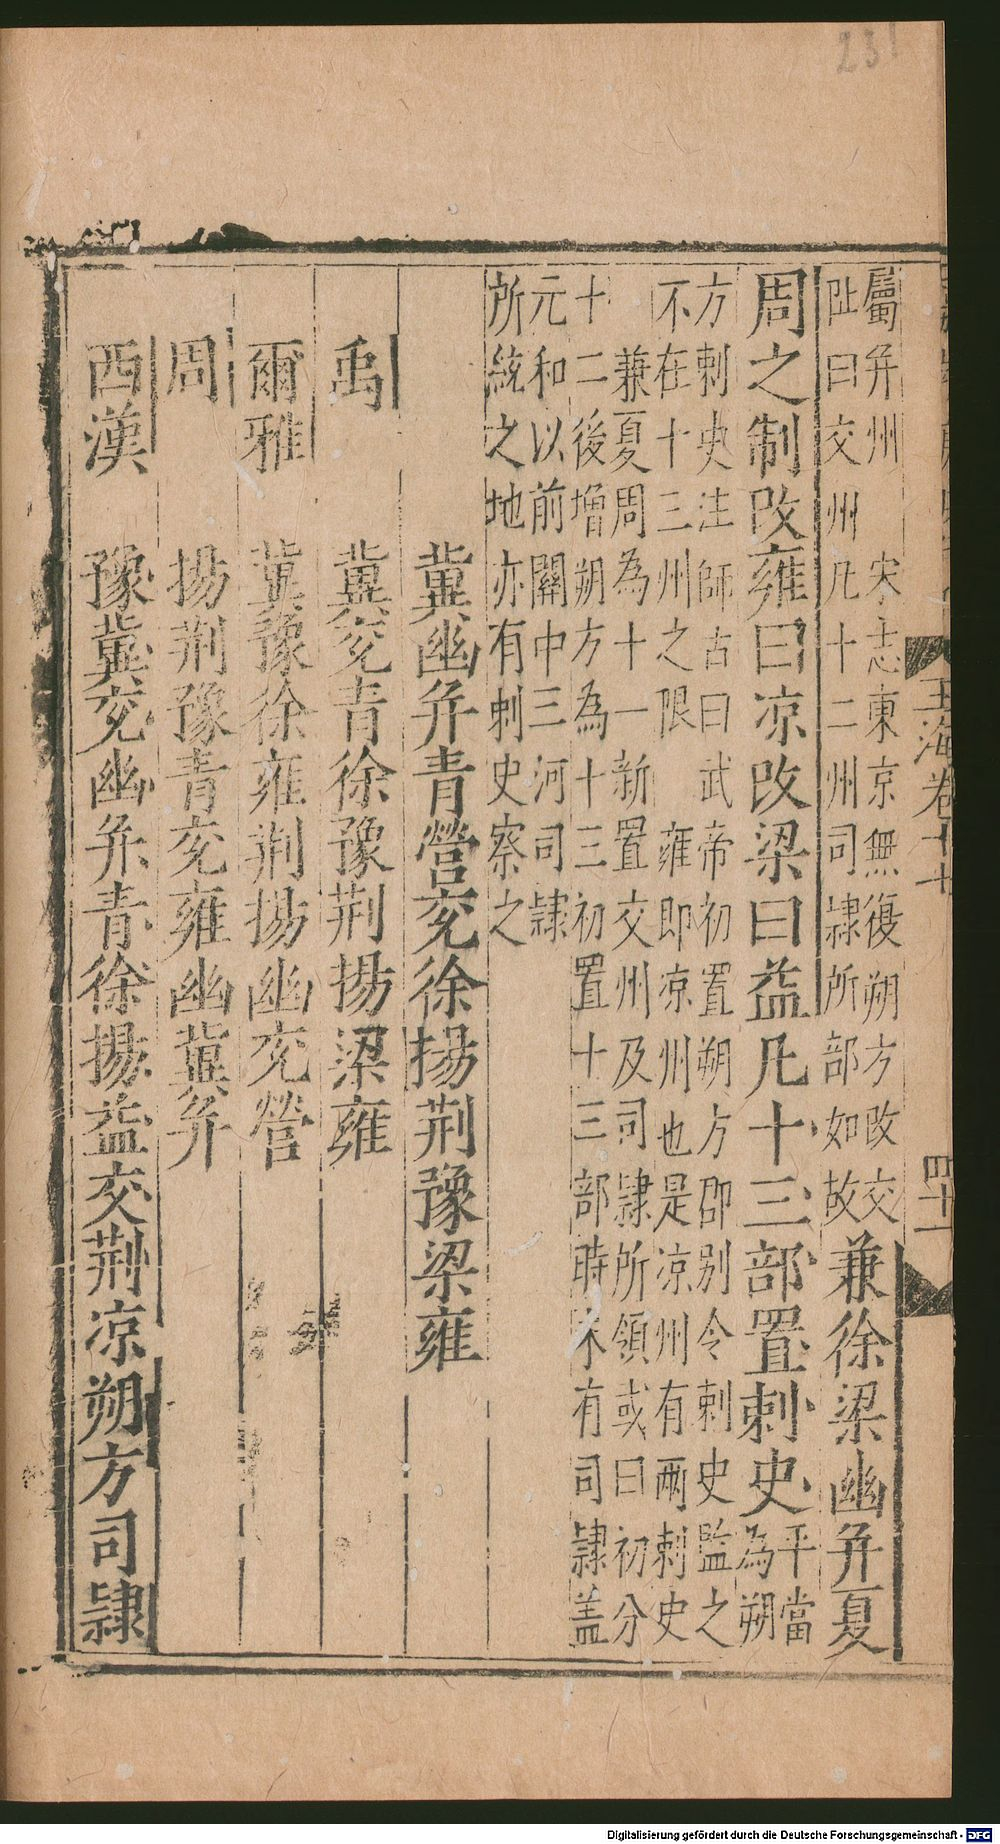 231
玉海卷
四十一
屬并州 宋志東京無復朔方改交
阯曰交州凡十二州司隸所部如故
兼徐梁幽并夏
周之制改雍曰凉改梁曰益凡十三部置刺史
平當
為朔
方刺史注師古曰武帝初置朔方郡别令刺史監之
不在十三州之限 雍即凉州也是凉州有兩刺史
兼夏周為十一新置交州及司隸所領或曰初分
十二後增朔方為十三初置十三部時未有司隸盖
元和以前關中三河司隸
所統之地亦有刺史察之
冀幽并青營兖徐揚荆豫梁雍
禹 冀兖青徐豫荆揚梁雍
爾雅 冀豫徐雍荆揚幽兖營
周 揚荆豫青兖雍幽冀并
西漢 豫冀兖幽并青徐揚益交荆凉朔方司隸
Digitalisierung gefördert durch die Deutsche Forschungsgemeinschaft - DFG